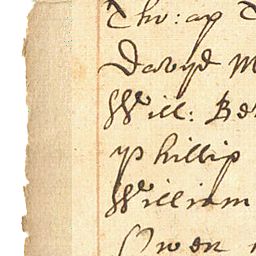 Tho: ap
Davyd M
Will: Be
Phillip
William
Owen